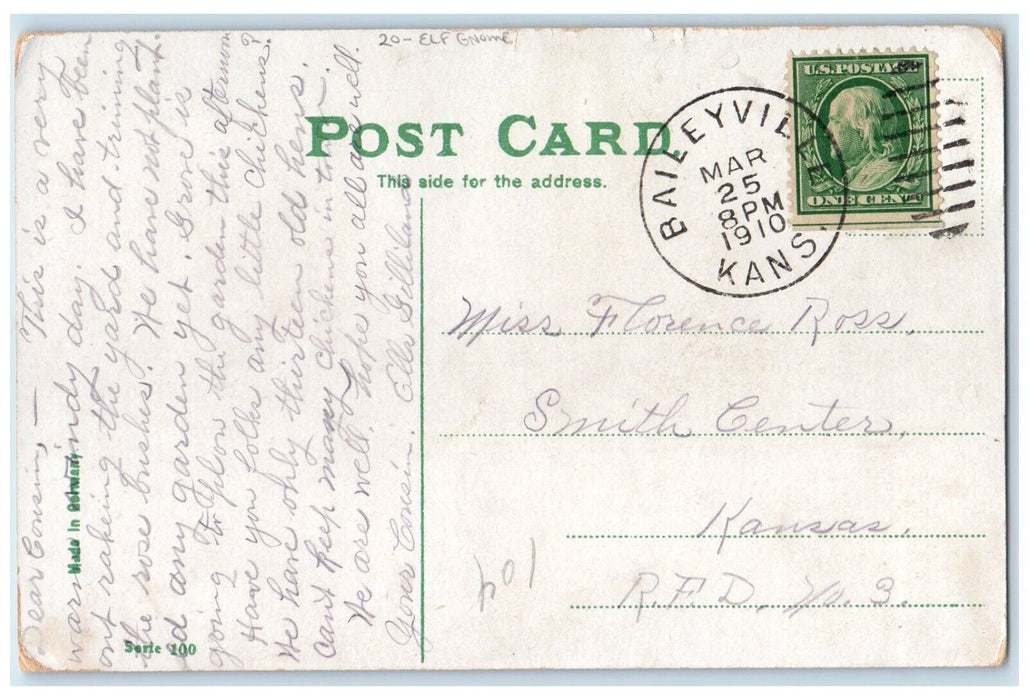 20- ELF GNOME
POST CARD
This side for the address.
U.S. POSTAGE
ONE CENT
BAILEYVILLE
MAR
25
8PM
1910
KANS.
Dear Cousin, — This is a very
warm windy day. I have been
out rakeing the yard and triming
the rose bushes. We have not plant-
ed any garden yet. Grove is
going to plow the garden this afternoon
Have you folks any little chickens?
We have only thirteen old hens.
Can't keep many chickens in town.
We are well, hope you all are well.
Your Cousin. Ella Gilliland
Miss Florence Ross,
Smith Center,
Kansas.
R.F.D. No. 3.
Made in Germany
Serie 100